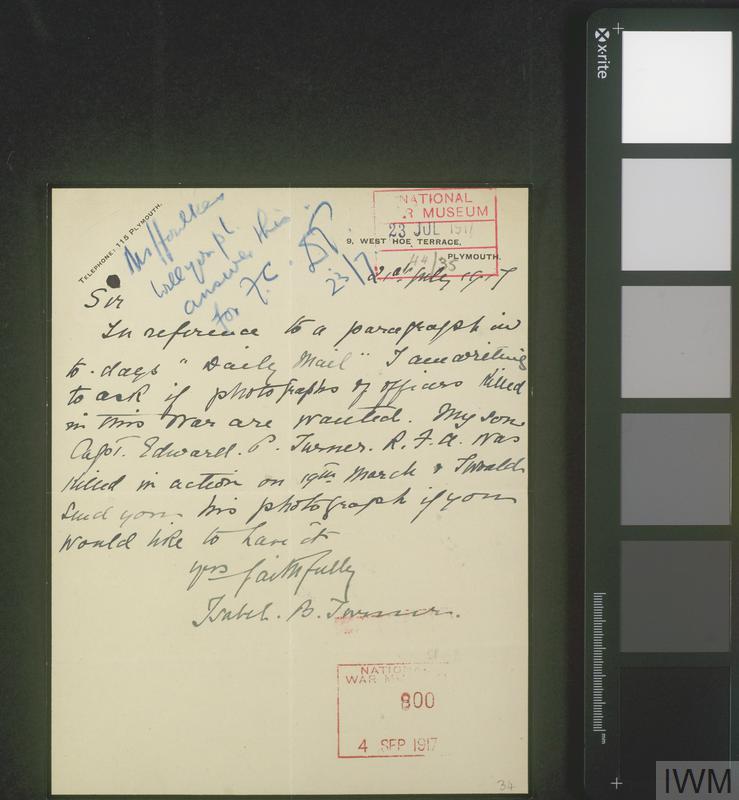 TELEPHONE: 115 PLYMOUTH.
will you pl.
answer this
for F.C.
23/7
NATIONAL
WAR MUSEUM
23 JUL 1917
44/35
9, WEST HOE TERRACE,
PLYMOUTH.
21st July 1917
Sir
In reference to a paragraph in
to-days "Daily Mail" I am writing
to ask if photographs of officers killed
in this War are wanted. My son
Capt. Edward. P. Turner. R. F. A. was
killed in action on 19th March & I would
send you his photograph if you
would like to have it
yrs faithfully
Isabel. B. Turner.
NATIONAL
WAR MUSEUM
800
4 SEP 1917
34
x-rite
mm
IWM